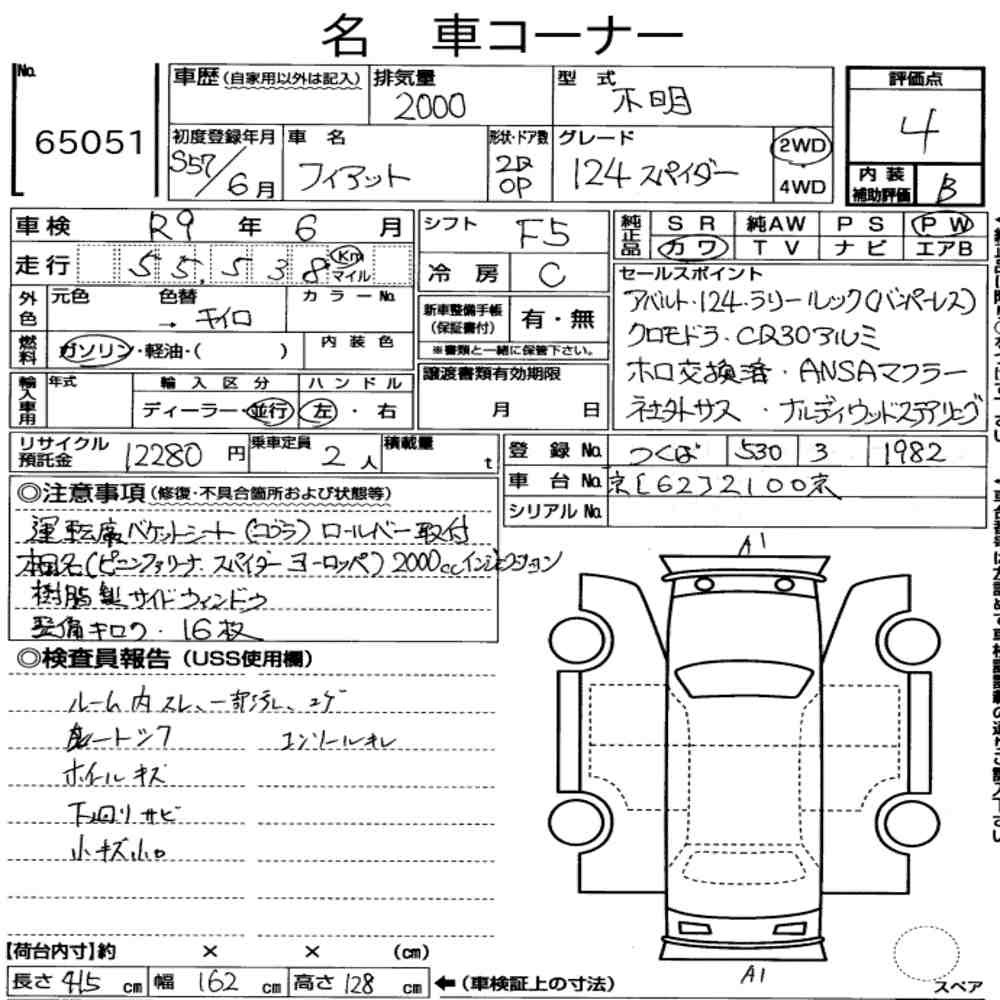 名 車コーナー
No.
65051
車歴 (自家用以外は記入)
排気量
2000
型 式
不明
評価点
4
初度登録年月
S57/6月
車 名
フィアット
形状・ドア数
2D
OP
グレード
124 スパイダー
2WD
4WD
内 装
補助評価
B
車検 R9 年 6 月
走行 55,538 Km マイル
シフト F5
冷房 C
純正品
SR 純AW PS PW
カワ TV ナビ エアB
外色
元色 色替 カラーNo.
→ キイロ
燃料
ガソリン・軽油・( )
内装色
新車整備手帳
(保証書付)
有・無
※書類と一緒に保管下さい。
セールスポイント
アバルト・124・ラリールック(バンパーレス)
クロモドラ・CD30アルミ
ホロ交換済・ANSAマフラー
社外サス ・ナルディウッドステアリング
輸入車用
年式
輸入区分
ディーラー・並行
ハンドル
左・右
譲渡書類有効期限
月 日
リサイクル
預託金
12280円
乗車定員
2人
積載量
t
登録No. つくば 530 3 1982
車台No. 京[62]2100京
シリアルNo.
◎注意事項 (修復・不具合箇所および状態等)
運転席バケットシート(コブラ) ロールバー取付
本国名(ピニンファリーナ スパイダーヨーロッパ) 2000ccインジェクション
樹脂製サイドウィンドウ
整備キロク・16枚
◎検査員報告 (USS使用欄)
ルーム内スレ、一部汚レ、コゲ
シフト
コンソールキレ
ホイールキズ
下回リサビ
小キズ小凹
A1
A1
スペア
【荷台内寸】約 × × (cm)
長さ 415 cm 幅 162 cm 高さ 128 cm ←(車検証上の寸法)